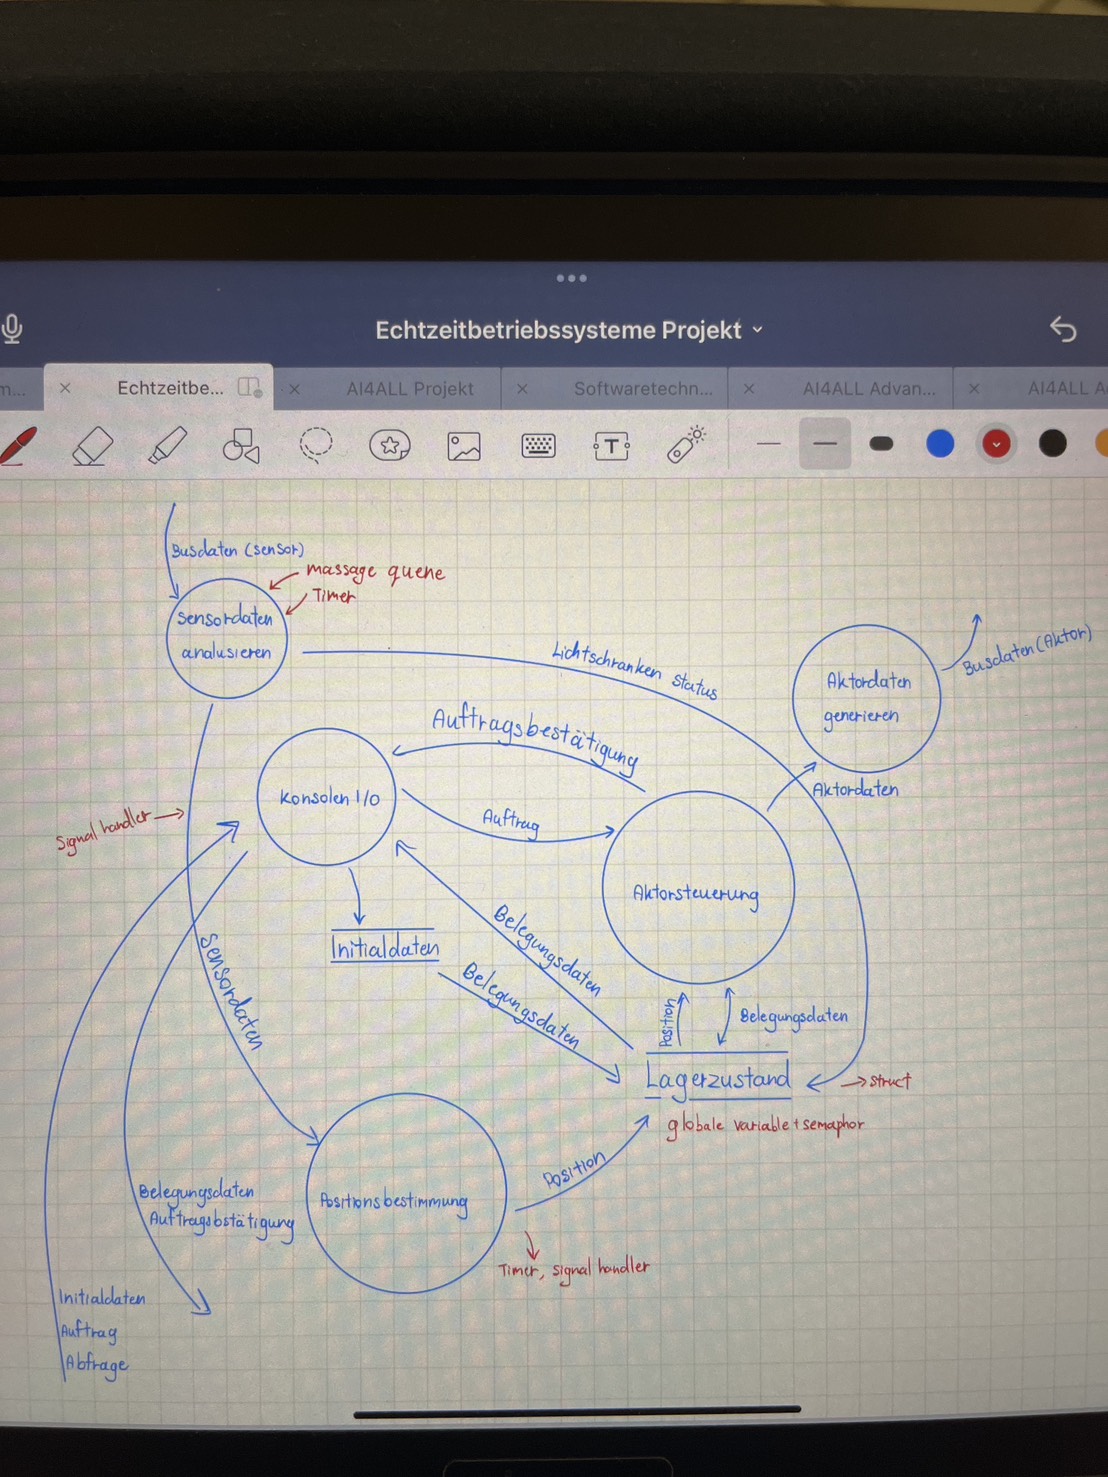 Echtzeitbetriebssysteme Projekt
m...
Echtzeitbe...
AI4ALL Projekt
Softwaretechn...
AI4ALL Advan...
AI4ALL A
T
Busdaten (sensor)
massage quene
Timer
sensordaten
analusieren
Lichtschranken status
Aktordaten
generieren
Busdaten (Aktor)
Auftragsbestätigung
Konsolen I/O
Auftrag
Aktordaten
Signal handler
Aktorsteuerung
Initialdaten
Belegungsdaten
Belegungsdaten
Sensordaten
Position
Belegungsdaten
Lagerzustand
struct
globale variable + semaphor
Position
Positionsbestimmung
Belegungsdaten
Auftragsbstätigung
Timer, signal handler
Initialdaten
Auftrag
Abfrage